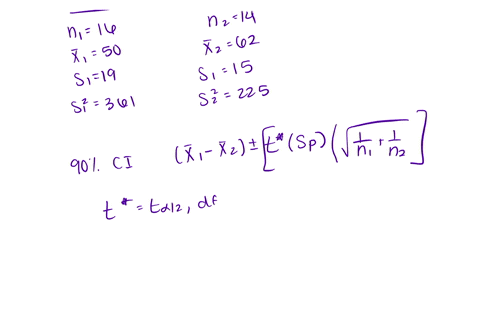 n₁=16
x̄₁=50
S₁=19
S₁²=361
n₂=14
x̄₂=62
S₁=15
S₂²=225
90% CI (x̄₁-x̄₂)±[t*(Sp)(√(1/n₁+1/n₂)]
t*=tα/2, df